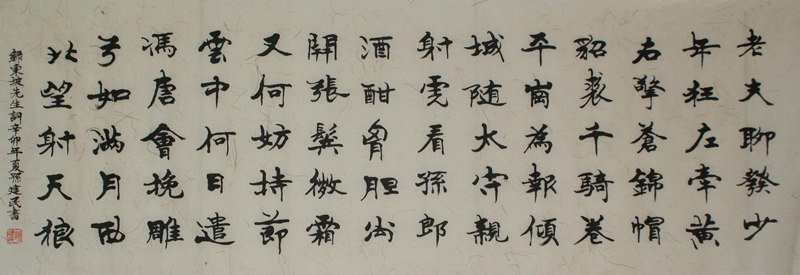 老夫聊發少
年狂左牽黃
右擎蒼錦帽
貂裘千騎卷
平崗為報傾
城随太守親
射虎看孫郎
酒酣胷胆尚
開張鬢微霜
又何妨持節
雲中何日遣
馮唐會挽雕
弓如滿月西
北望射天狼
錄東坡先生詞辛卯年夏孫建民書